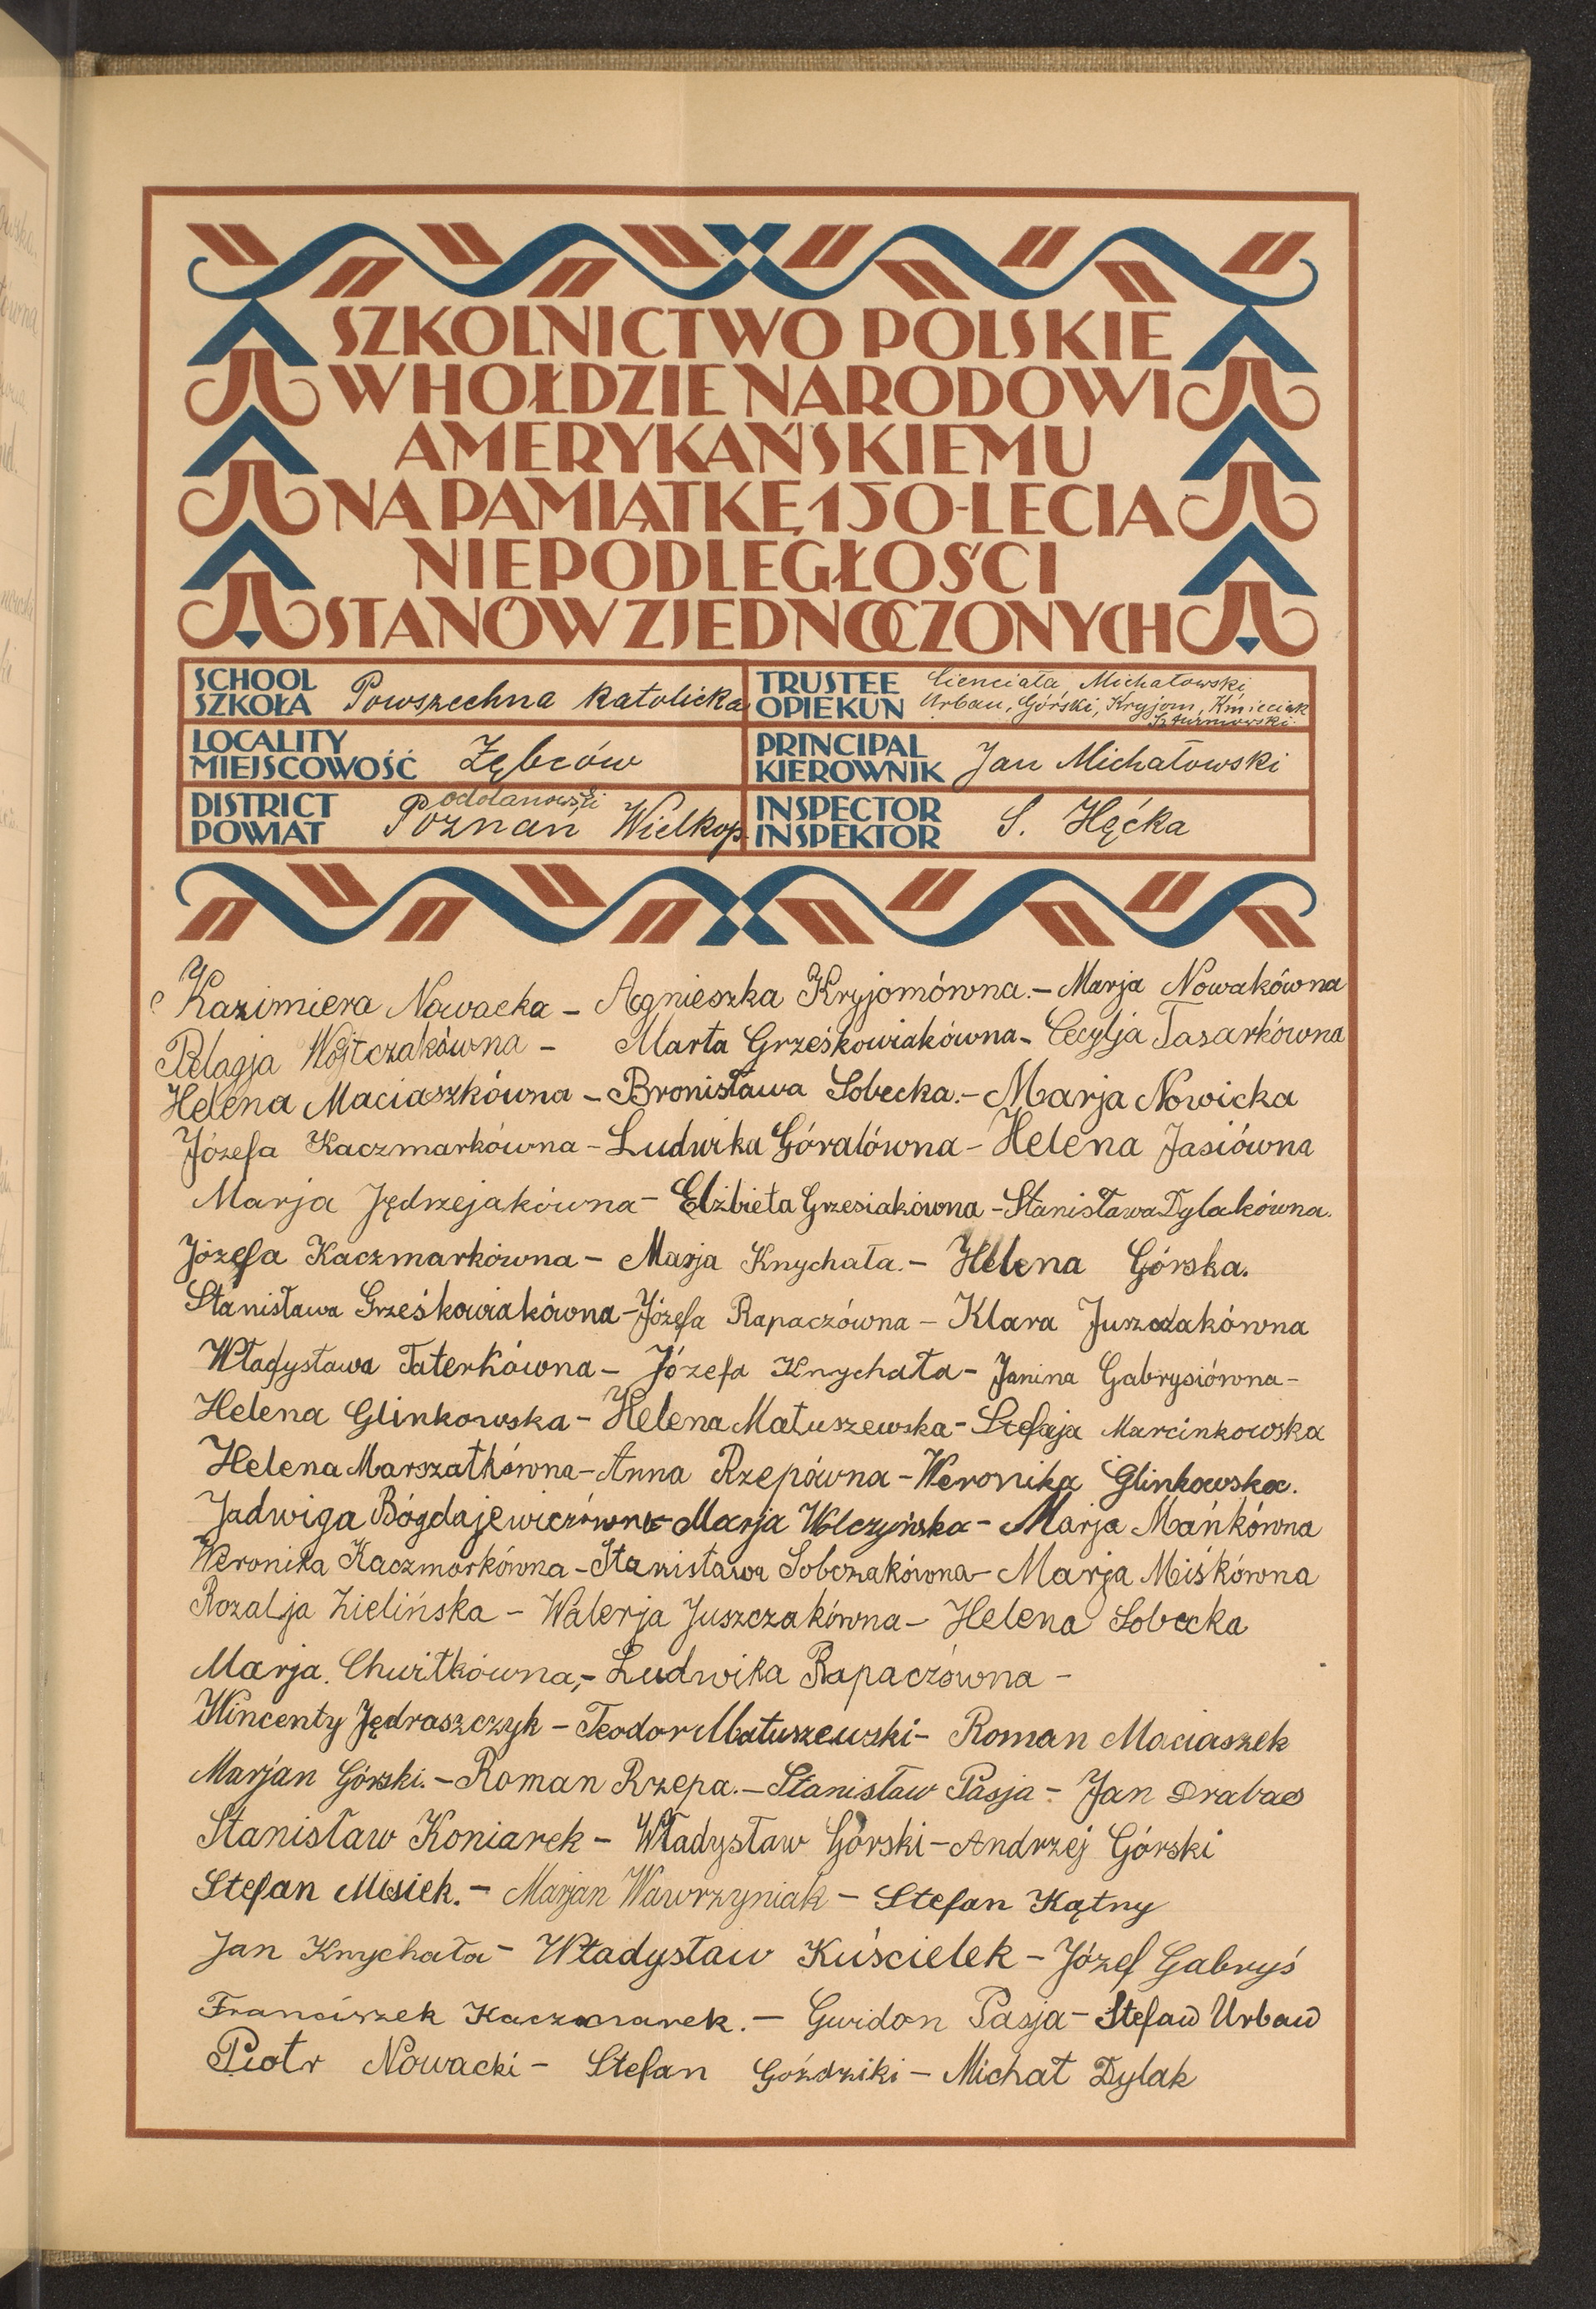 SZKOLNICTWO POLSKIE
W HOŁDZIE NARODOWI
AMERYKAŃSKIEMU
NA PAMIĄTKĘ 150-LECIA
NIEPODLEGŁOŚCI
STANÓW ZJEDNOCZONYCH
SCHOOL
SZKOŁA Powszechna katolicka
TRUSTEE
OPIEKUN Cienciała Michałowski
Urban, Górski, Kryjom, Kmieciak
LOCALITY
MIEJSCOWOŚĆ Zębców
PRINCIPAL
KIEROWNIK Jan Michałowski
DISTRICT
POWIAT odolanowski
Poznań Wielkop.
INSPECTOR
INSPEKTOR S. Hęćka
Kazimiera Nowacka – Agnieszka Kryjomówna. – Marja Nowakówna
Pelagja Wojtczakówna – Marta Grześkowiakówna – Cecylja Tasarkówna
Helena Maciaszkówna – Bronisława Sobecka. – Marja Nowicka
Józefa Kaczmarkówna – Ludwika Góralówna – Helena Jasiówna
Marja Jędrzejakówna – Elżbieta Grzesiakówna – Stanisława Dylakówna.
Józefa Kaczmarkówna – Marja Knychała. – Helena Górska.
Stanisława Grześkowiakówna – Józefa Rapaczówna – Klara Juszczakówna
Władysława Taterkówna – Józefa Knychała – Janina Gabrysiówna –
Helena Glinkowska – Helena Matuszewska – Stefaja Marcinkowska
Helena Marszałkówna – Anna Rzepówna – Weronika Glinkowska.
Jadwiga Bógdajewiczówna – Marja Wolczyńska – Marja Mańkówna
Weronika Kaczmarkówna – Stanisława Sobczakówna – Marja Miśkówna
Rozalja Zielińska – Walerja Juszczakówna – Helena Sobecka
Marja. Chwiłkówna, – Ludwika Rapaczówna –
Wincenty Jędraszczyk – Teodor Matuszewski – Roman Maciaszek
Marjan Górski. – Roman Rzepa. – Stanisław Pasja – Jan Drabas
Stanisław Koniarek – Władysław Górski – Andrzej Górski
Stefan Misiek. – Marjan Wawrzyniak – Stefan Kątny
Jan Knychała – Władysław Kuścielek – Józef Gabryś
Franciszek Kaczmarek. – Gwidon Pasja – Stefan Urban
Piotr Nowacki – Stefan Goździki – Michał Dylak